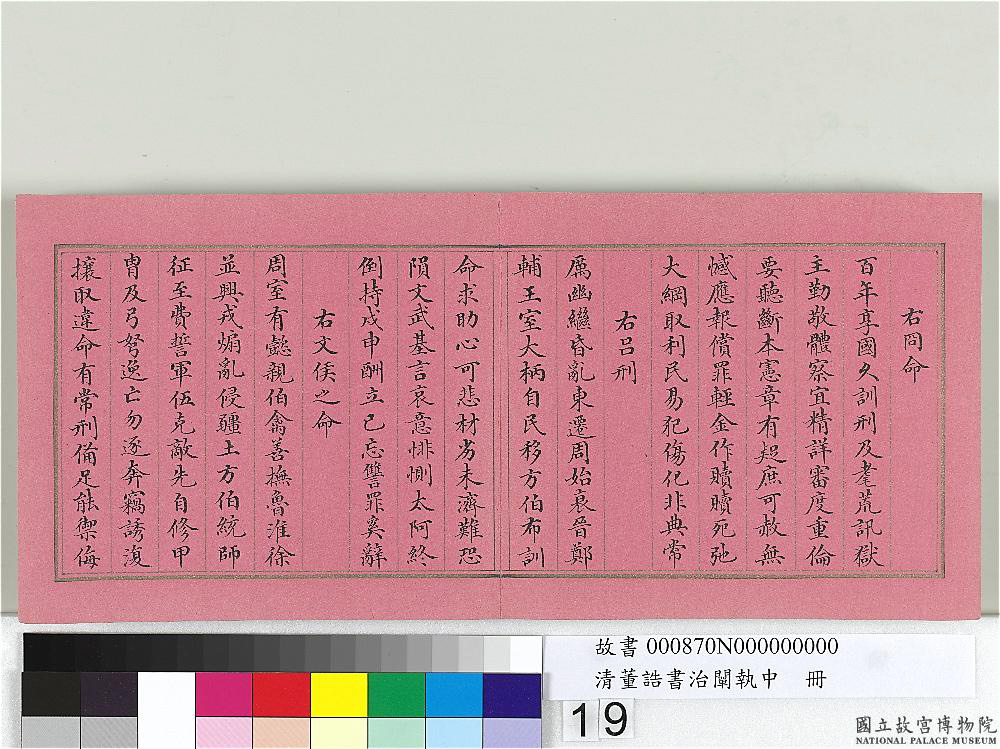 右冏命
百年享國久訓刑及耄荒訊獄
主勤敬體察宜精詳審度重倫
要聽斷本憲章有疑庶可赦無
憾應報償罪輕金作贖贖死弛
大綱取利民易犯傷化非典常
右呂刑
厲幽繼昏亂東遷周始衰晉鄭
輔王室大柄自民移方伯布訓
命求助心可悲材劣未濟難恐
隕文武基言哀意悱惻太阿終
倒持戍申酬立己忘讐罪奚辭
右文侯之命
周室有懿親伯禽善撫魯淮徐
並興戎煽亂侵疆土方伯統師
征至費誓軍伍克敵先自修甲
胄及弓弩逸亡勿逐奔竊誘復
攘取違命有常刑備足能禦侮
故書 000870N000000000
清董誥書治闡執中 冊
19
國立故宮博物院
NATIONAL PALACE MUSEUM